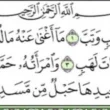 بِسْمِ ٱللَّهِ ٱلرَّحْمَٰنِ ٱلرَّحِيمِ
وَتَبَّ ۝١ مَآ أَغْنَىٰ عَنْهُ مَالُهُ
لَهَبٍ ۝٣ وَٱمْرَأَتُهُۥ حَمَّ
دِهَا حَبْلٌ مِّن مَّسَدٍ